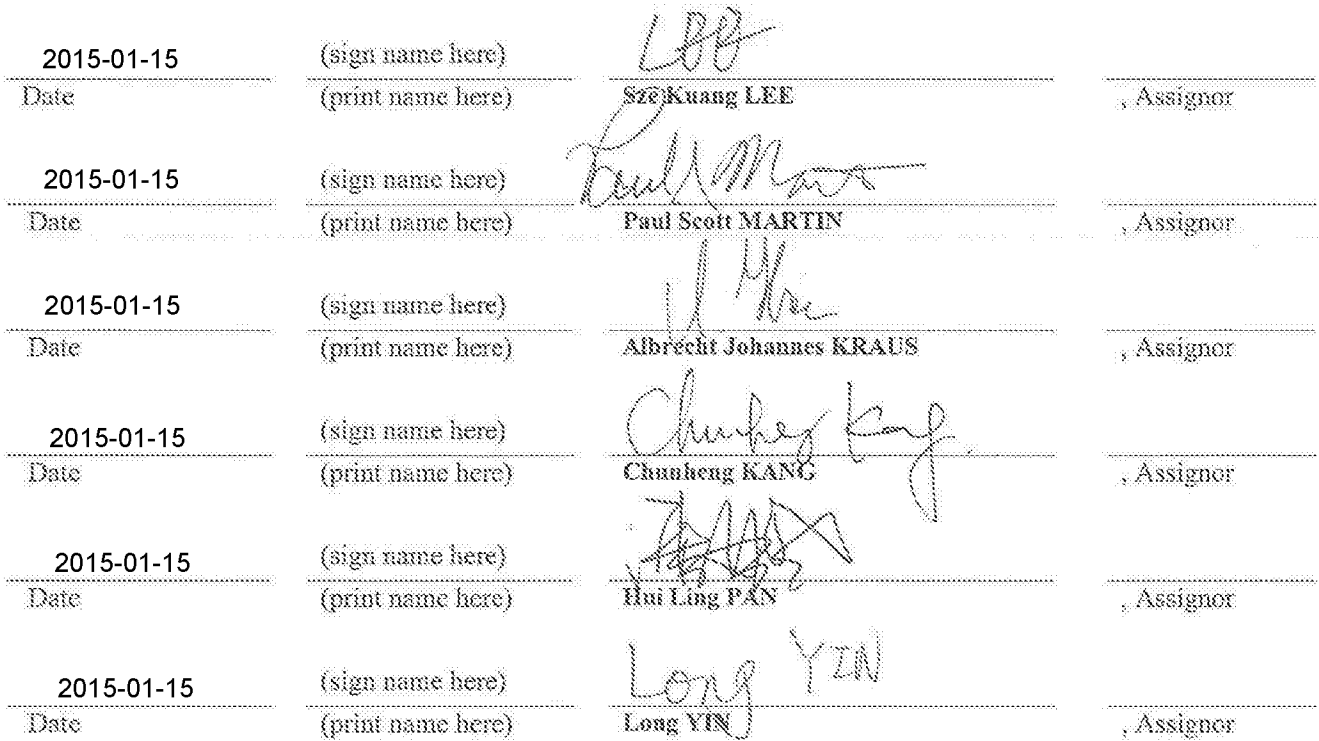 2015-01-15 (sign name here) LEE
Date (print name here) Sze Kuang LEE , Assignor
2015-01-15 (sign name here) Paul Martin
Date (print name here) Paul Scott MARTIN , Assignor
2015-01-15 (sign name here)
Date (print name here) Albrecht Johannes KRAUS , Assignor
2015-01-15 (sign name here) Chunheng Kang
Date (print name here) Chunheng KANG , Assignor
2015-01-15 (sign name here)
Date (print name here) Hui Ling PAN , Assignor
2015-01-15 (sign name here) Long YIN
Date (print name here) Long YIN , Assignor